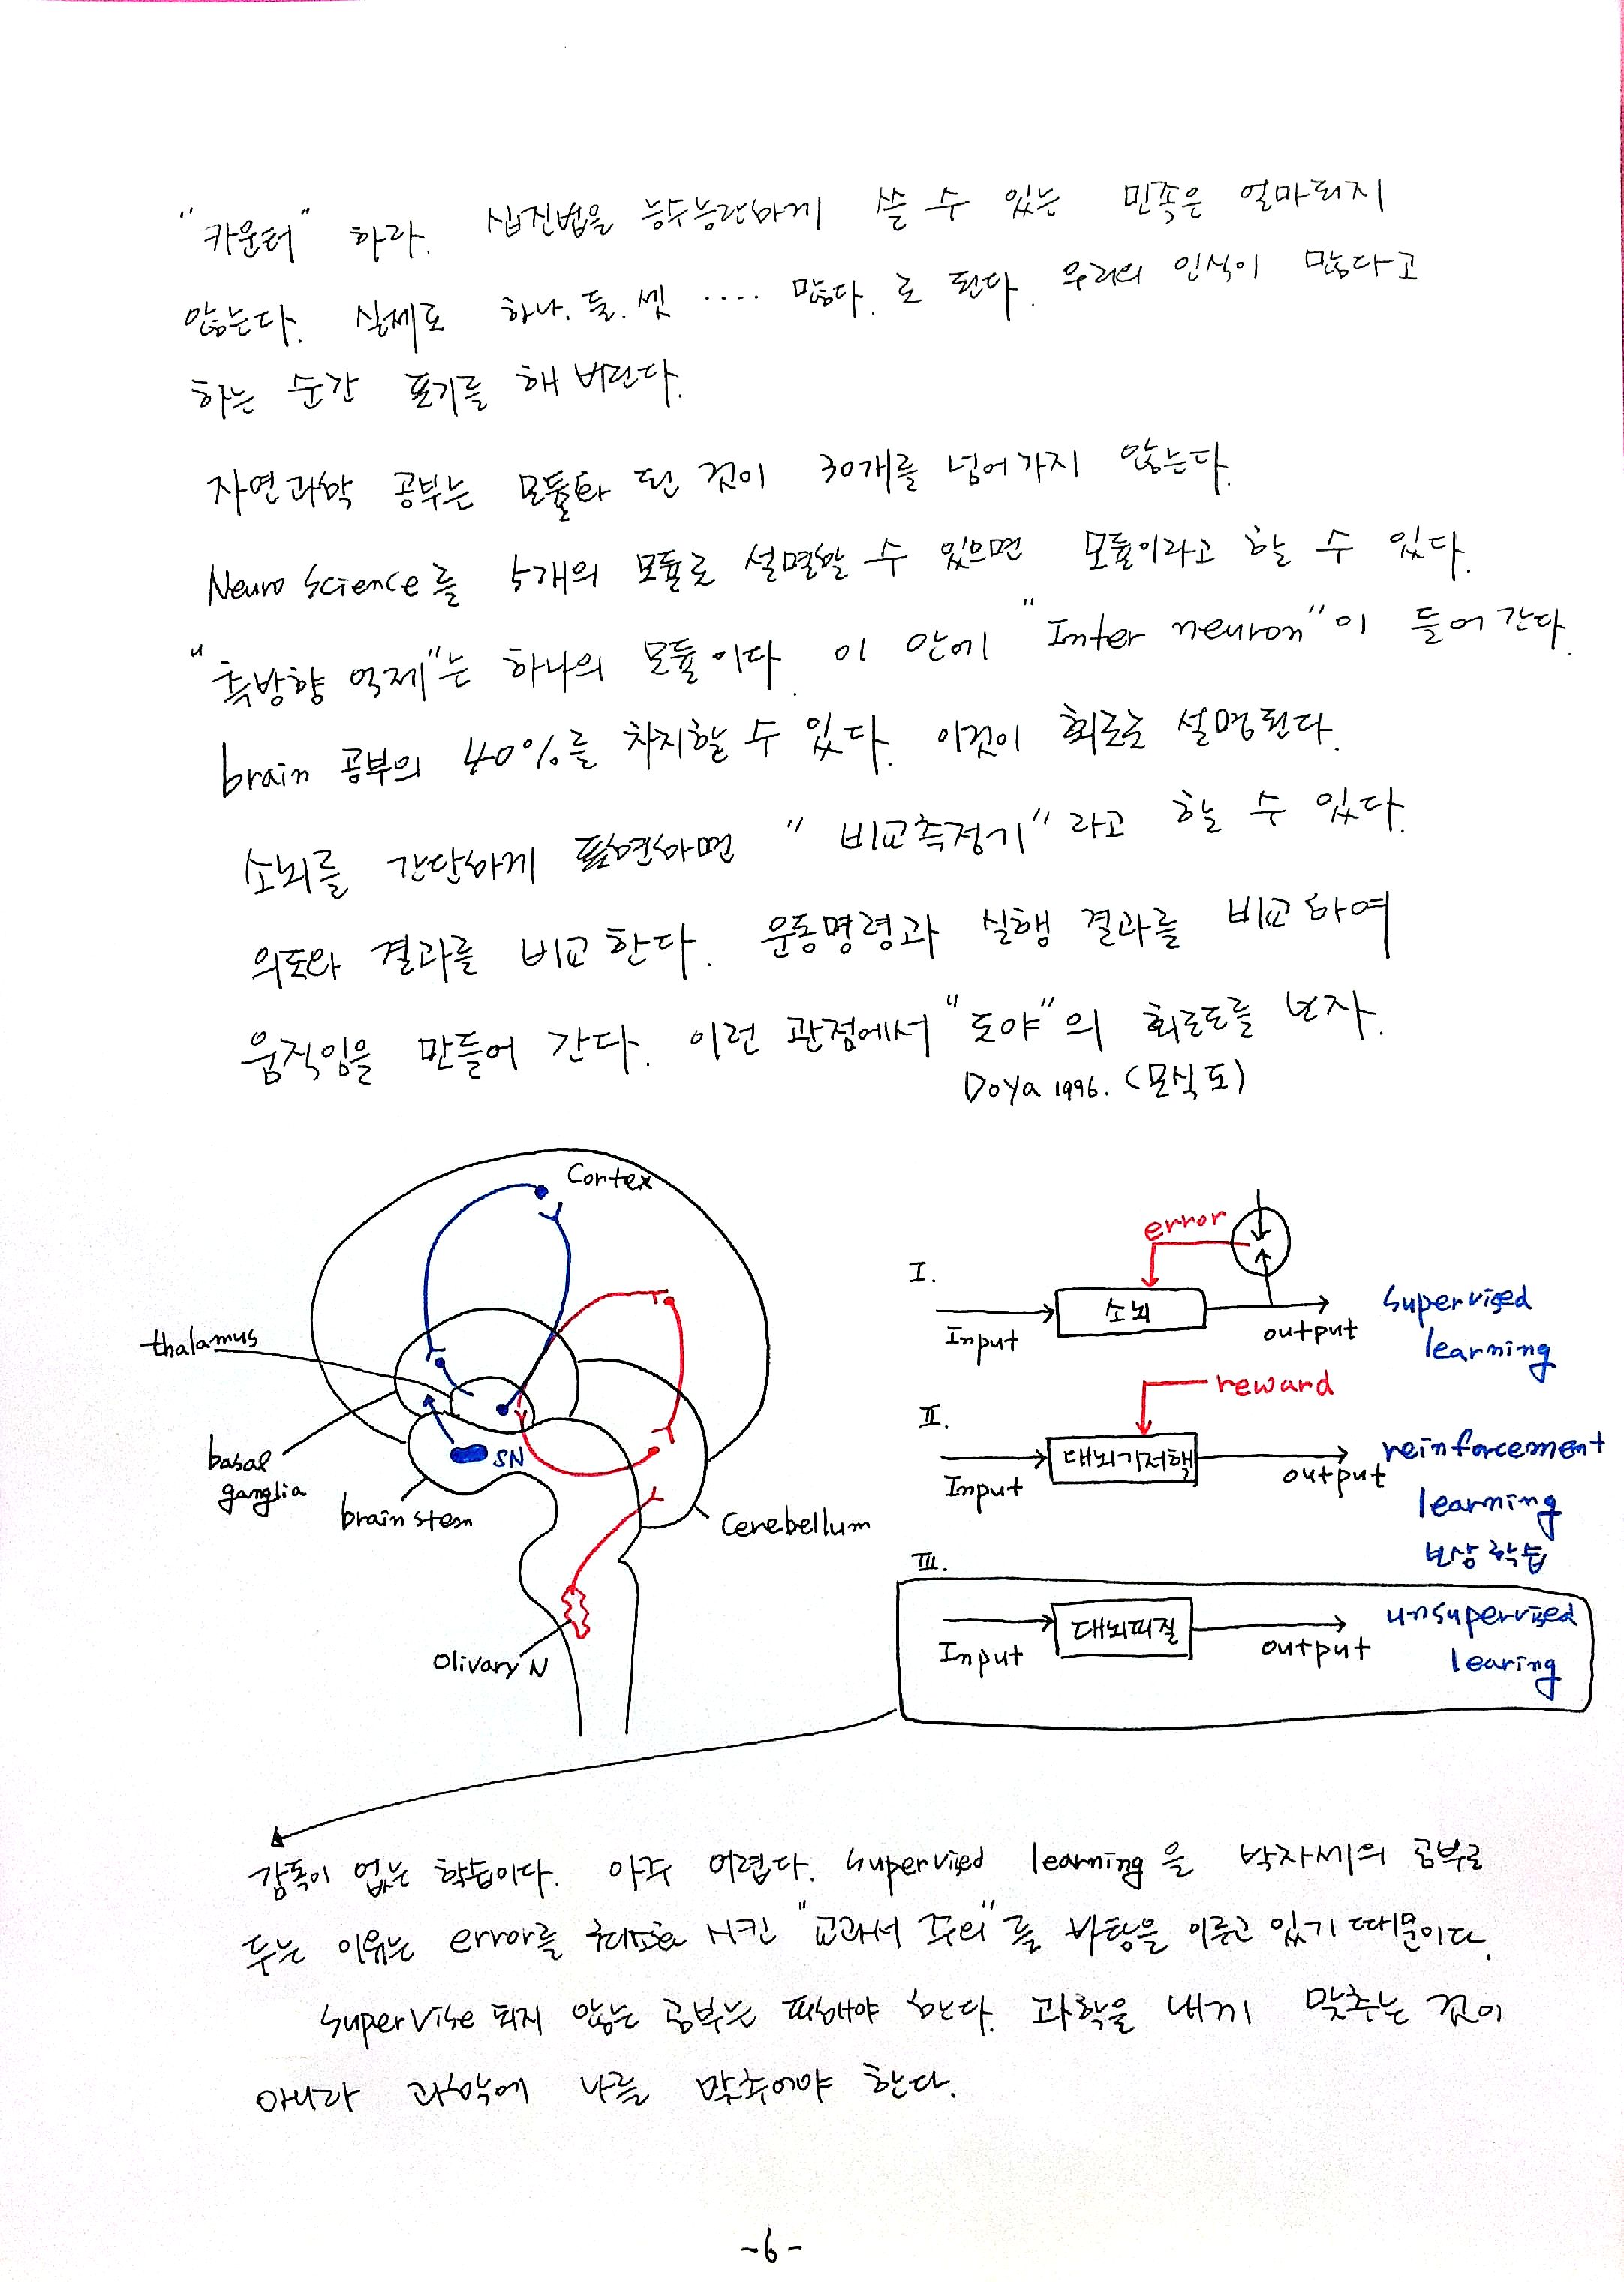 "카운터" 하라. 십진법을 능수능란하게 쓸 수 있는 민족은 얼마되지
않는다. 실제로 하나. 둘. 셋 .... 많다. 로 된다. 우리의 인식이 많다고
하는 순간 포기를 해 버린다.
자연과학 공부는 모듈화 된 것이 30개를 넘어가지 않는다.
Neuro Science를 5개의 모듈로 설명할 수 있으면 모듈이라고 할 수 있다.
"측방향 억제"는 하나의 모듈이다. 이 안에 "Inter neuron"이 들어간다.
brain 공부의 40%를 차지할 수 있다. 이것이 회로로 설명된다.
소뇌를 간단하게 표현하면 "비교측정기"라고 할 수 있다.
의도와 결과를 비교한다. 운동명령과 실행 결과를 비교하여
움직임을 만들어 간다. 이런 관점에서 "도야"의 회로도를 보자.
Doya 1996. (모식도)
Cortex
thalamus
basal
ganglia
SN
brain stem
Cerebellum
Olivary N
I.
error
Input
소뇌
output
supervised
learning
II.
reward
Input
대뇌기저핵
output
reinforcement
learning
보상 학습
III.
Input
대뇌피질
output
unsupervised
learing
감독이 없는 학습이다. 아주 어렵다. supervised learning을 박자세의 공부로
두는 이유는 error를 최소화 시킨 "교과서 주의"를 바탕을 이루고 있기 때문이다.
supervise 되지 않는 공부는 피해야 한다. 과학을 내게 맞추는 것이
아니라 과학에 나를 맞추어야 한다.
-6-